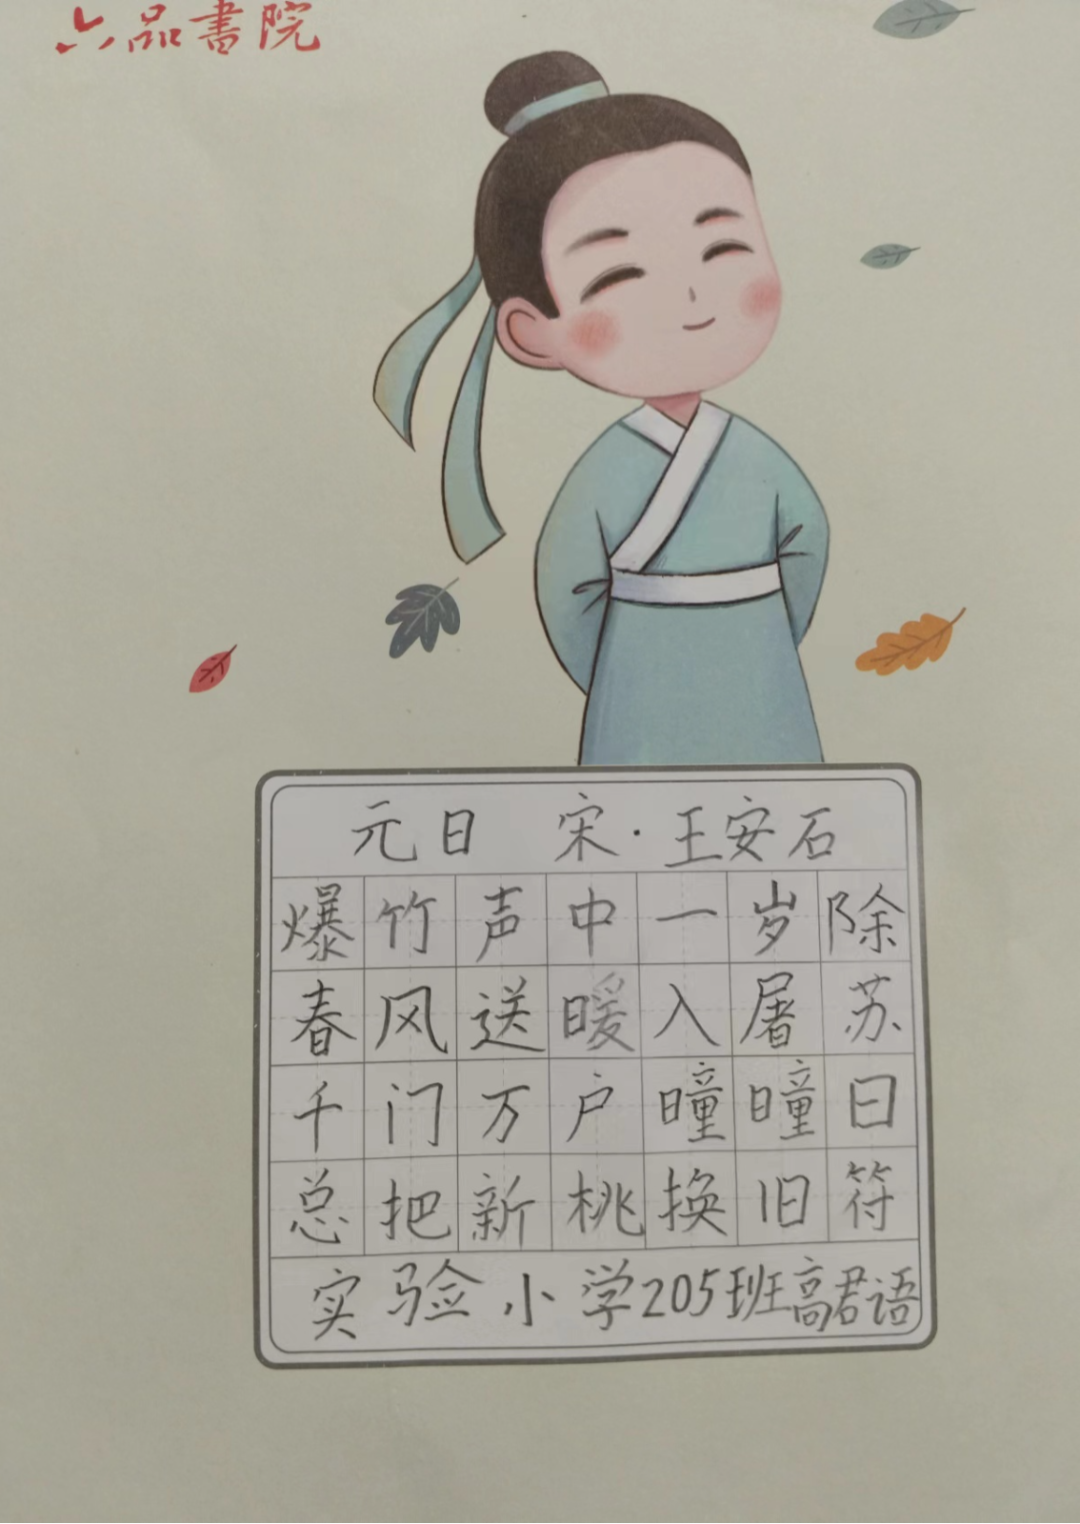 六品書院
元日 宋·王安石
爆竹声中一岁除
春风送暖入屠苏
千门万户曈曈日
总把新桃换旧符
实验小学205班高君语